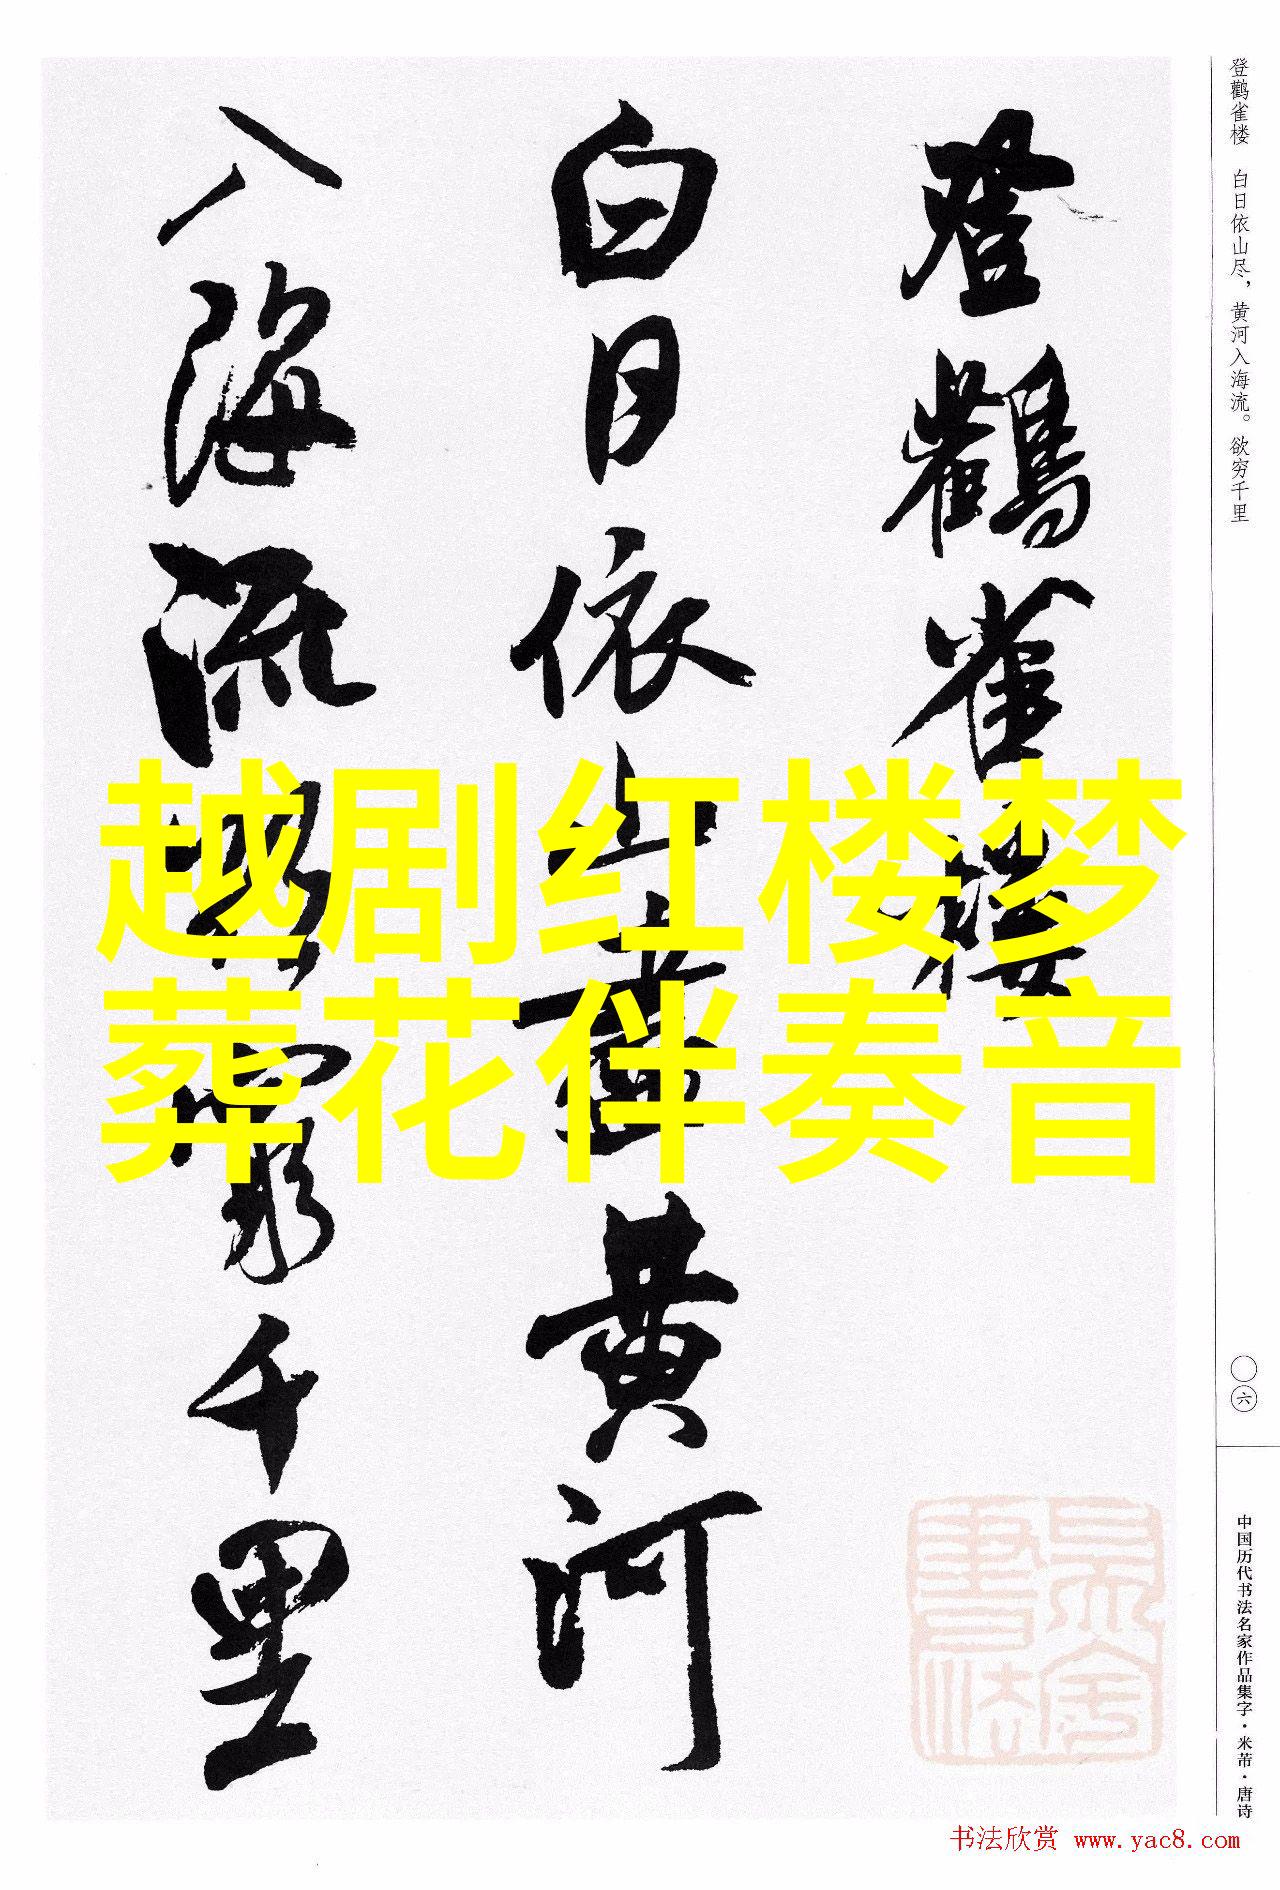 登鹳雀楼 白日依山尽，黄河入海流。欲穷千里
〇六
中国历代书法名家作品集字·米芾·唐诗
登鸛雀樓
白日依山盡黄河
入海流欲窮千里
越剧红楼梦
葬花伴奏音
书法欣赏 www.yac8.com